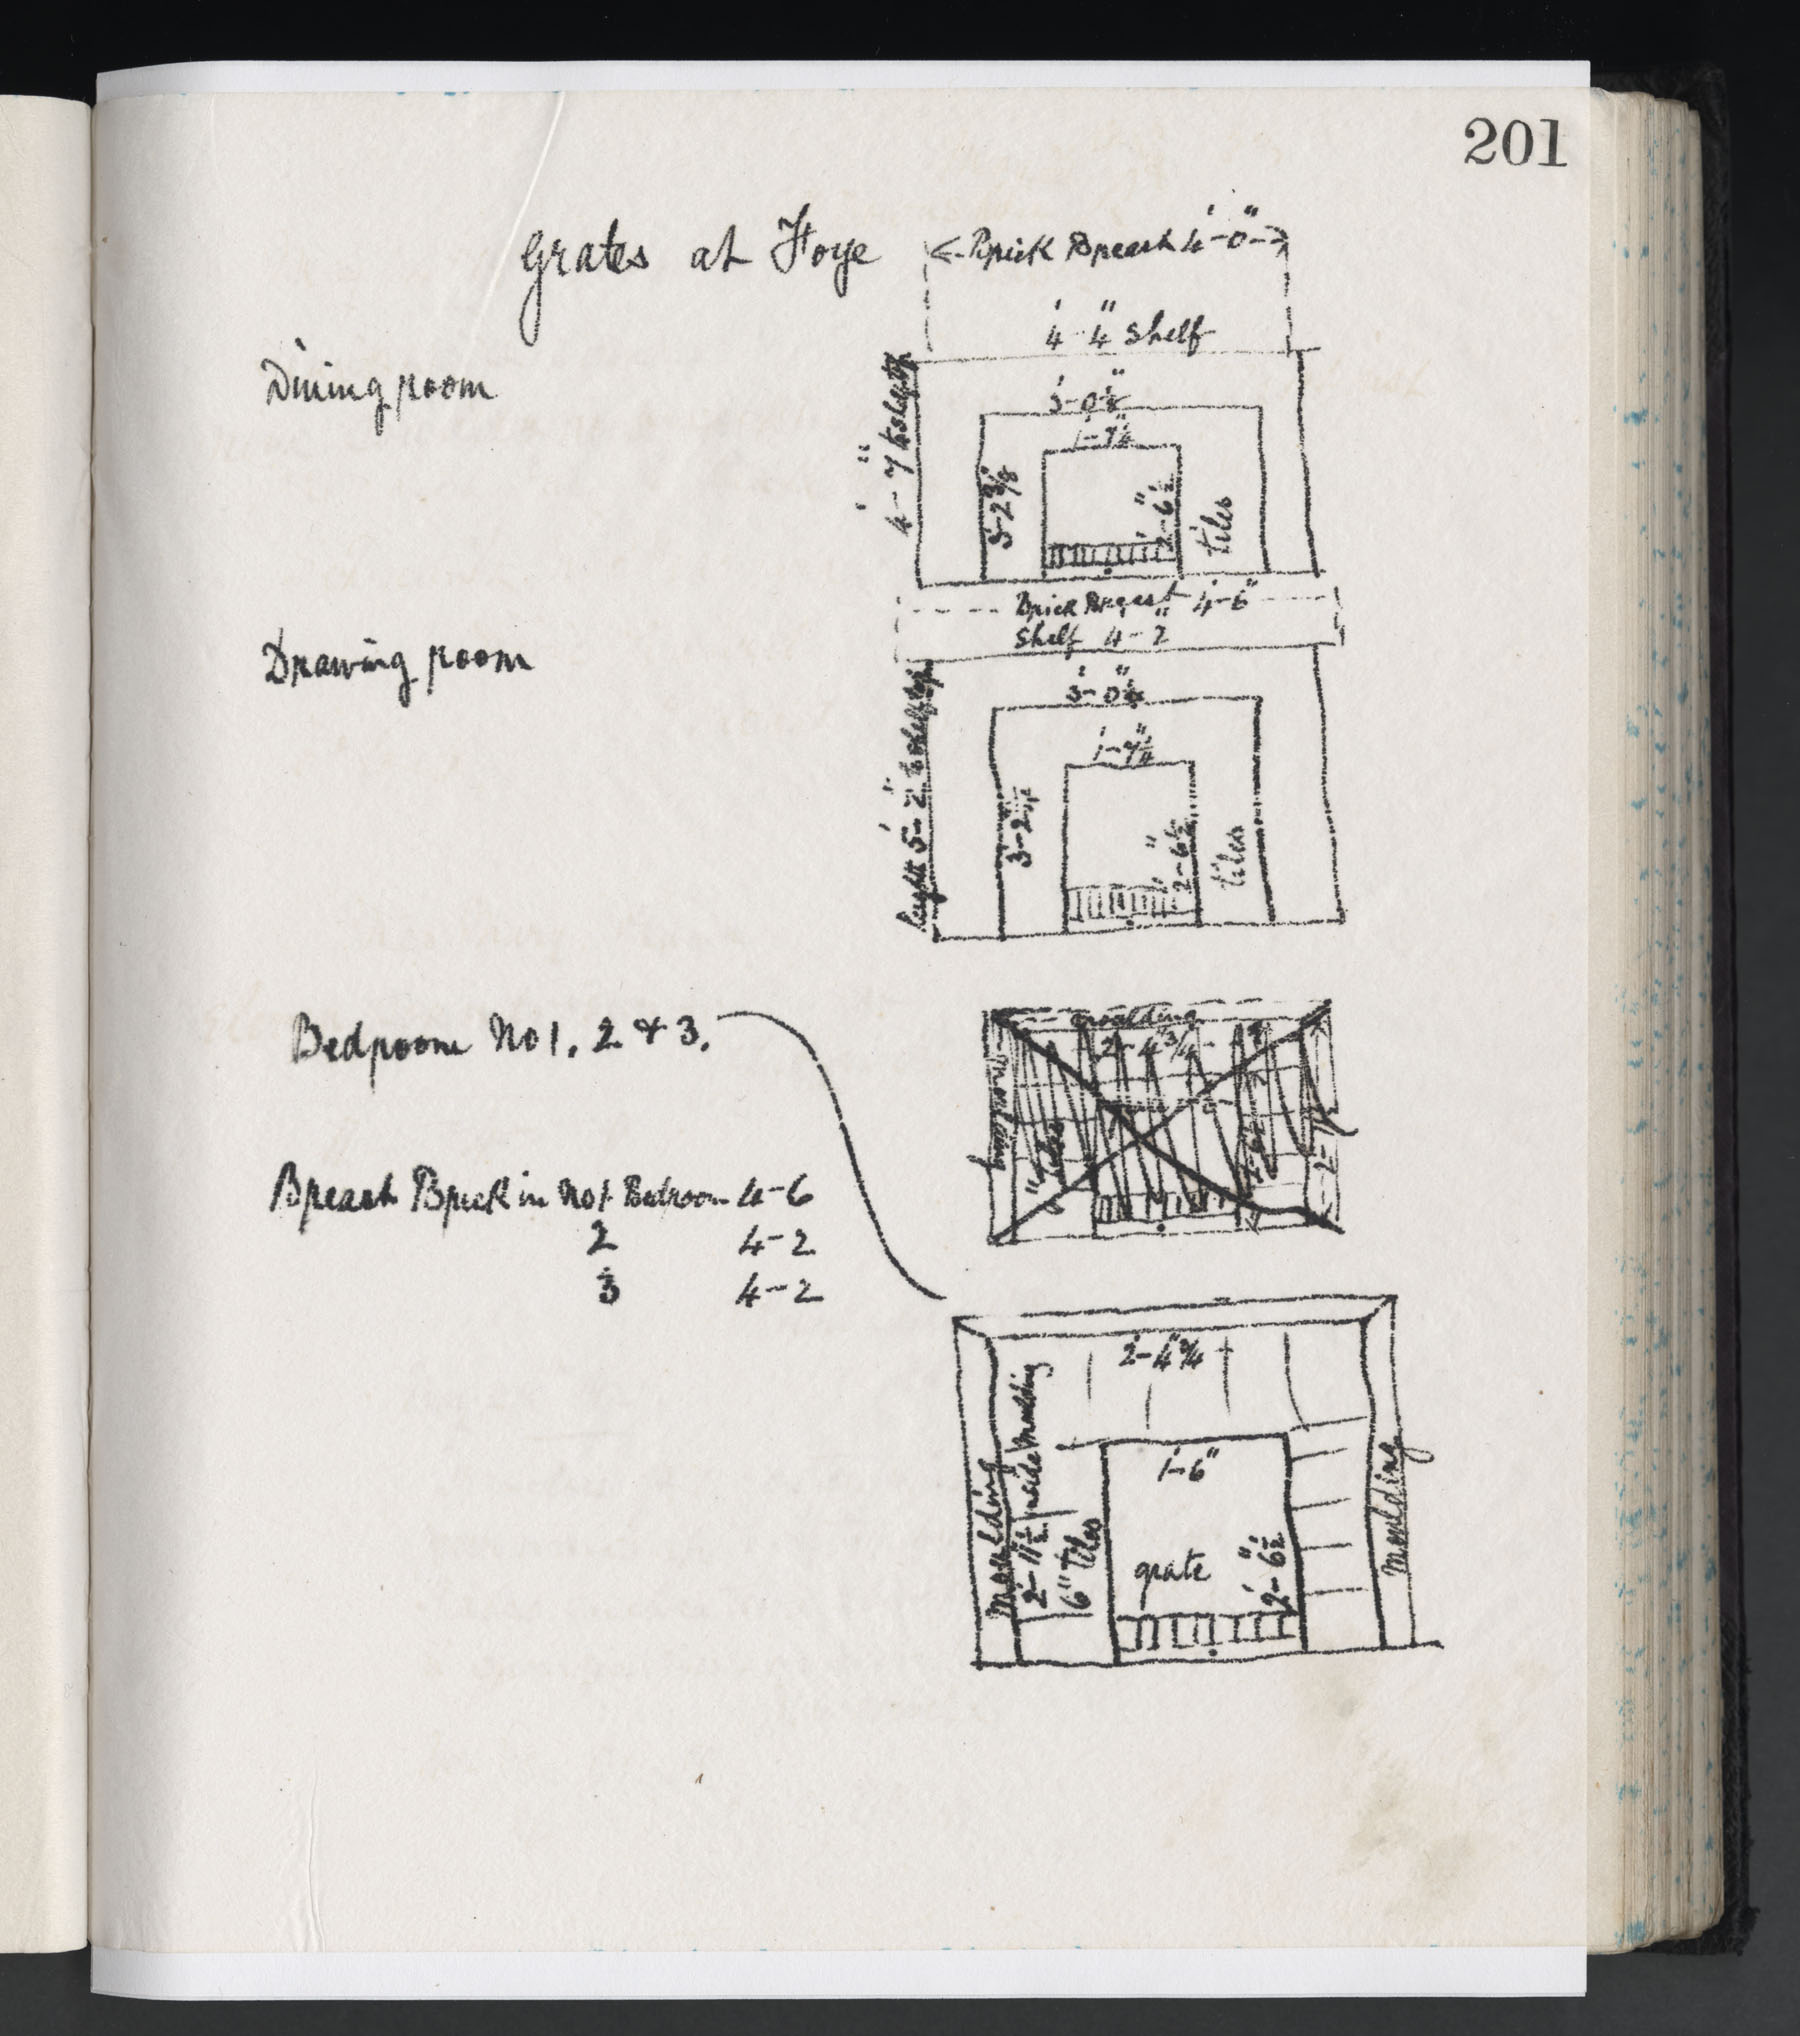 201
Grates at Hoye
<-Brick Breast 4'-0"->
4'-4" Shelf
Dining room
4'-7" to shelf top
3'-0⅛"
1'-7¼"
3'-2⅜"
2'-6½"
tiles
Brick Breast 4'-6"
Shelf 4'-2"
Drawing room
height 5'-2" to shelf top
3'-0⅛"
1'-7¼"
3'-2
2'-6½"
tiles
Bedroom No 1, 2 & 3.
moulding
2-4¾
moulding
tiles
Breast Brick in No 1 Bedroom 4-6
2 4-2
3 4-2
2'-4¾"
moulding
2'-11½" inside moulding
6" tiles
1'-6"
grate
2'-6½"
moulding